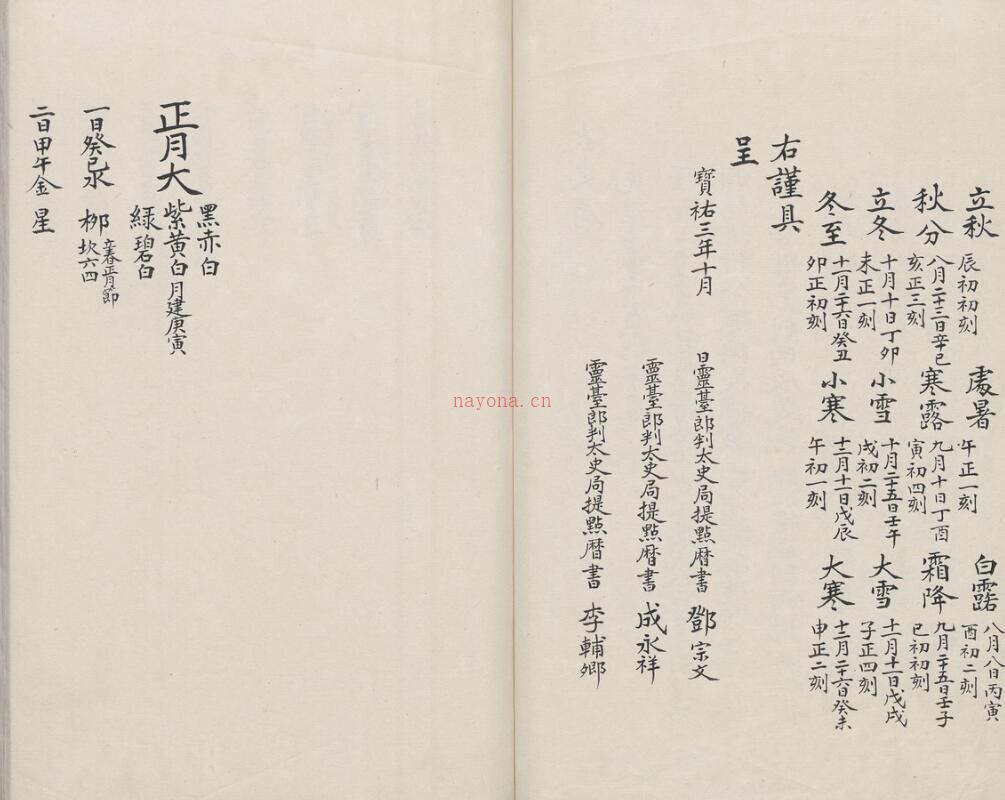 立秋
辰初初刻
處暑
午正一刻
白露
八月八日丙寅
酉初二刻
秋分
八月二十三日辛巳
亥正三刻
寒露
九月十日丁酉
寅初四刻
霜降
九月二十五日壬子
巳初初刻
立冬
十月十日丁卯
未正一刻
小雪
十月二十五日壬午
戌初二刻
大雪
十一月十一日戊戌
子正四刻
冬至
十一月二十六日癸丑
卯正初刻
小寒
十二月十一日戊辰
午初一刻
大寒
十二月二十六日癸未
申正二刻
右謹具
呈
寶祐三年十月
日靈臺郎判太史局提點曆書 鄧宗文
靈臺郎判太史局提點曆書 成永祥
靈臺郎判太史局提點曆書 李輔卿
正月大
黑赤白
紫黃白 月建庚寅
綠碧白
一日癸巳水 柳
立春正月節
坎六四
二日甲午金 星
nayona.cn